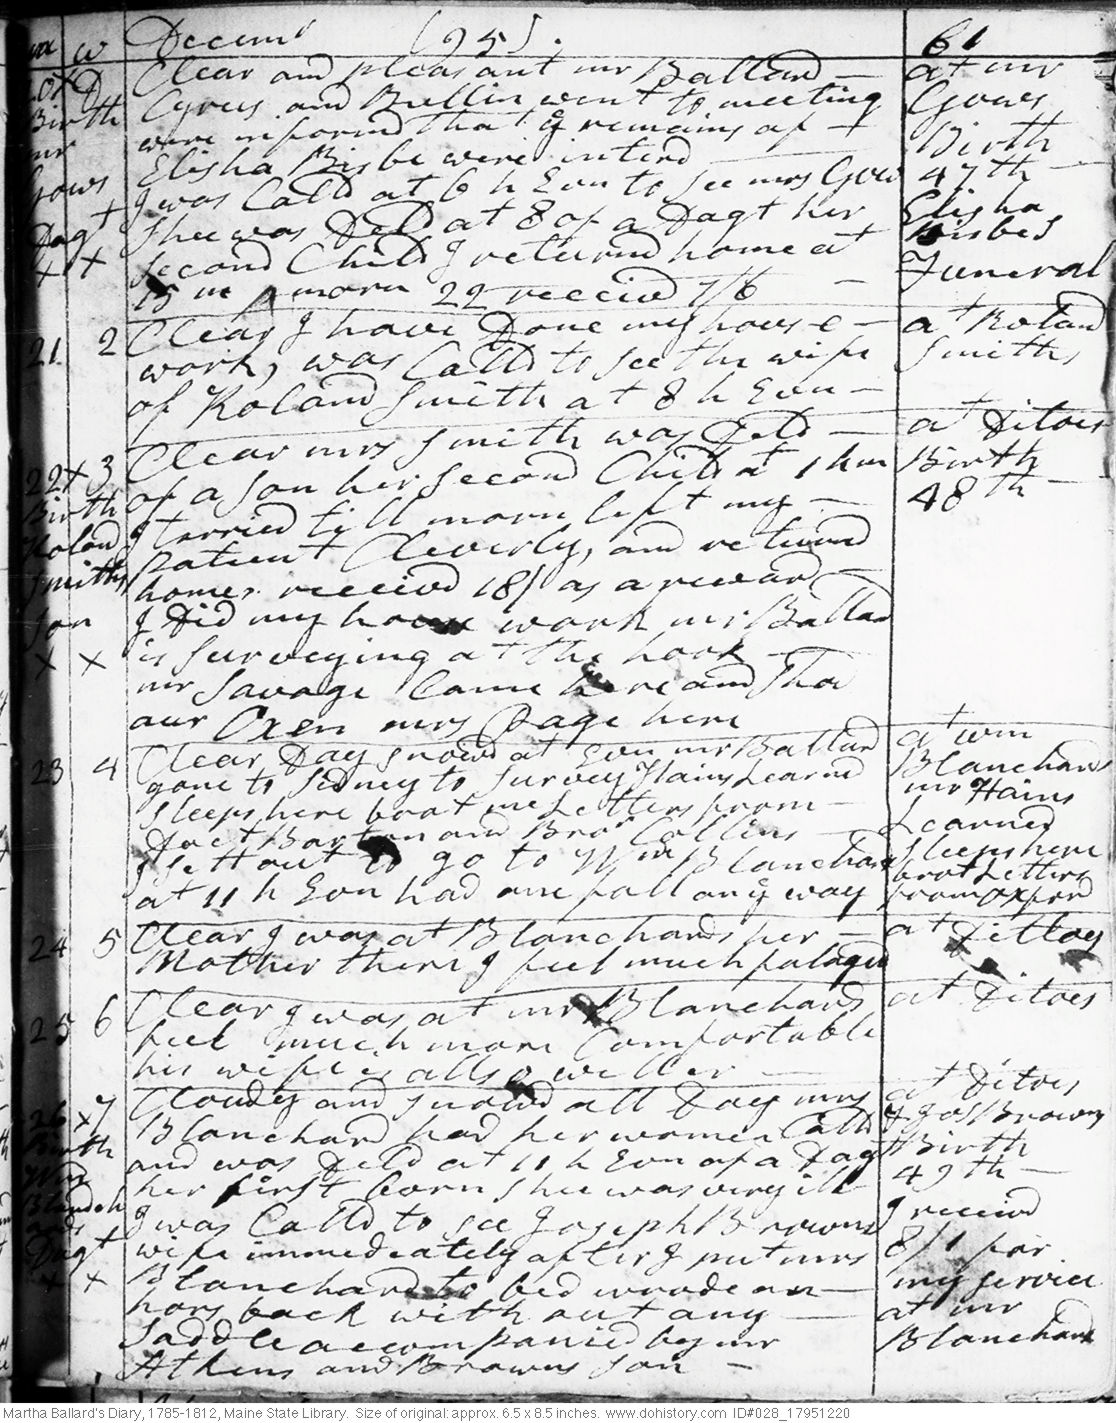 Decemr 1795.
61
20 x D
Birth
mr
Gows
Dagt
x x
Clear and pleasant mr Ballard
Cyrus and Bullin went to meeting
were informd that ye remains of
Elisha Bisbe were interd
I was Calld at 6 h Evn to see mrs Gow
Shee was Deld at 8 of a Dagt her
second Child I returnd home at
15 m morn 22 receivd 7/6
at mr
Gows
Birth
47th
Elisha
Bisbes
Funeral
21 2
Clear I have Done my house
work, was Calld to see the wife
of Roland Smith at 8 h Evn
at Roland
Smiths
22 x 3
Birth
Roland
Smiths
Son
x x
Clear mrs Smith was Deld
of a son her second Child at 1 h m
I tarried till morn left my
patient Cleverly, and returnd
home. receivd 18/ as a reward
I Did my house work mr Ballard
is surveying at the hook
mr Savage Came here and Shod
our Oxen mrs Page here
at Ditoes
Birth
48th
23 4
Clear Day snowd at Evn mr Ballard
gone to Sidney to survey Hains Learnd
sleeps here brot me Letters from
Doct Barton and Bror Collins
I sett out to go to Wm Blanchard
at 11 h Evn had one fall on ye way
at wm
Blanchards
mr Hains
Learned
sleeps here
brot Letters
from Oxford
24 5
Clear I was at Blanchards her
Mother there I feel much fatagud
at Dittoes
25 6
Clear I was at mr Blanchards
feel much more Comfortable
his wife is allso better
at Ditoes
26 x 7
Birth
Wm
Blanch
ards
Dagt
x x
Cloudy and snowd all Day mrs
Blanchard had her women Calld
and was Deld at 11 h Evn of a Dagt
her first born shee was very ill
I was Calld to see Joseph Browns
wife immediately after I put mrs
Blanchard to bed wrode on
hors back with out any
Saddle accompanied by mr
Athens and Browns son
at Ditoes
& Jos Browns
Birth
49th
I receivd
8/1 for
my service
at mr
Blanchard
Martha Ballard's Diary, 1785-1812, Maine State Library. Size of original: approx. 6.5 x 8.5 inches. www.dohistory.com ID#028_17951220